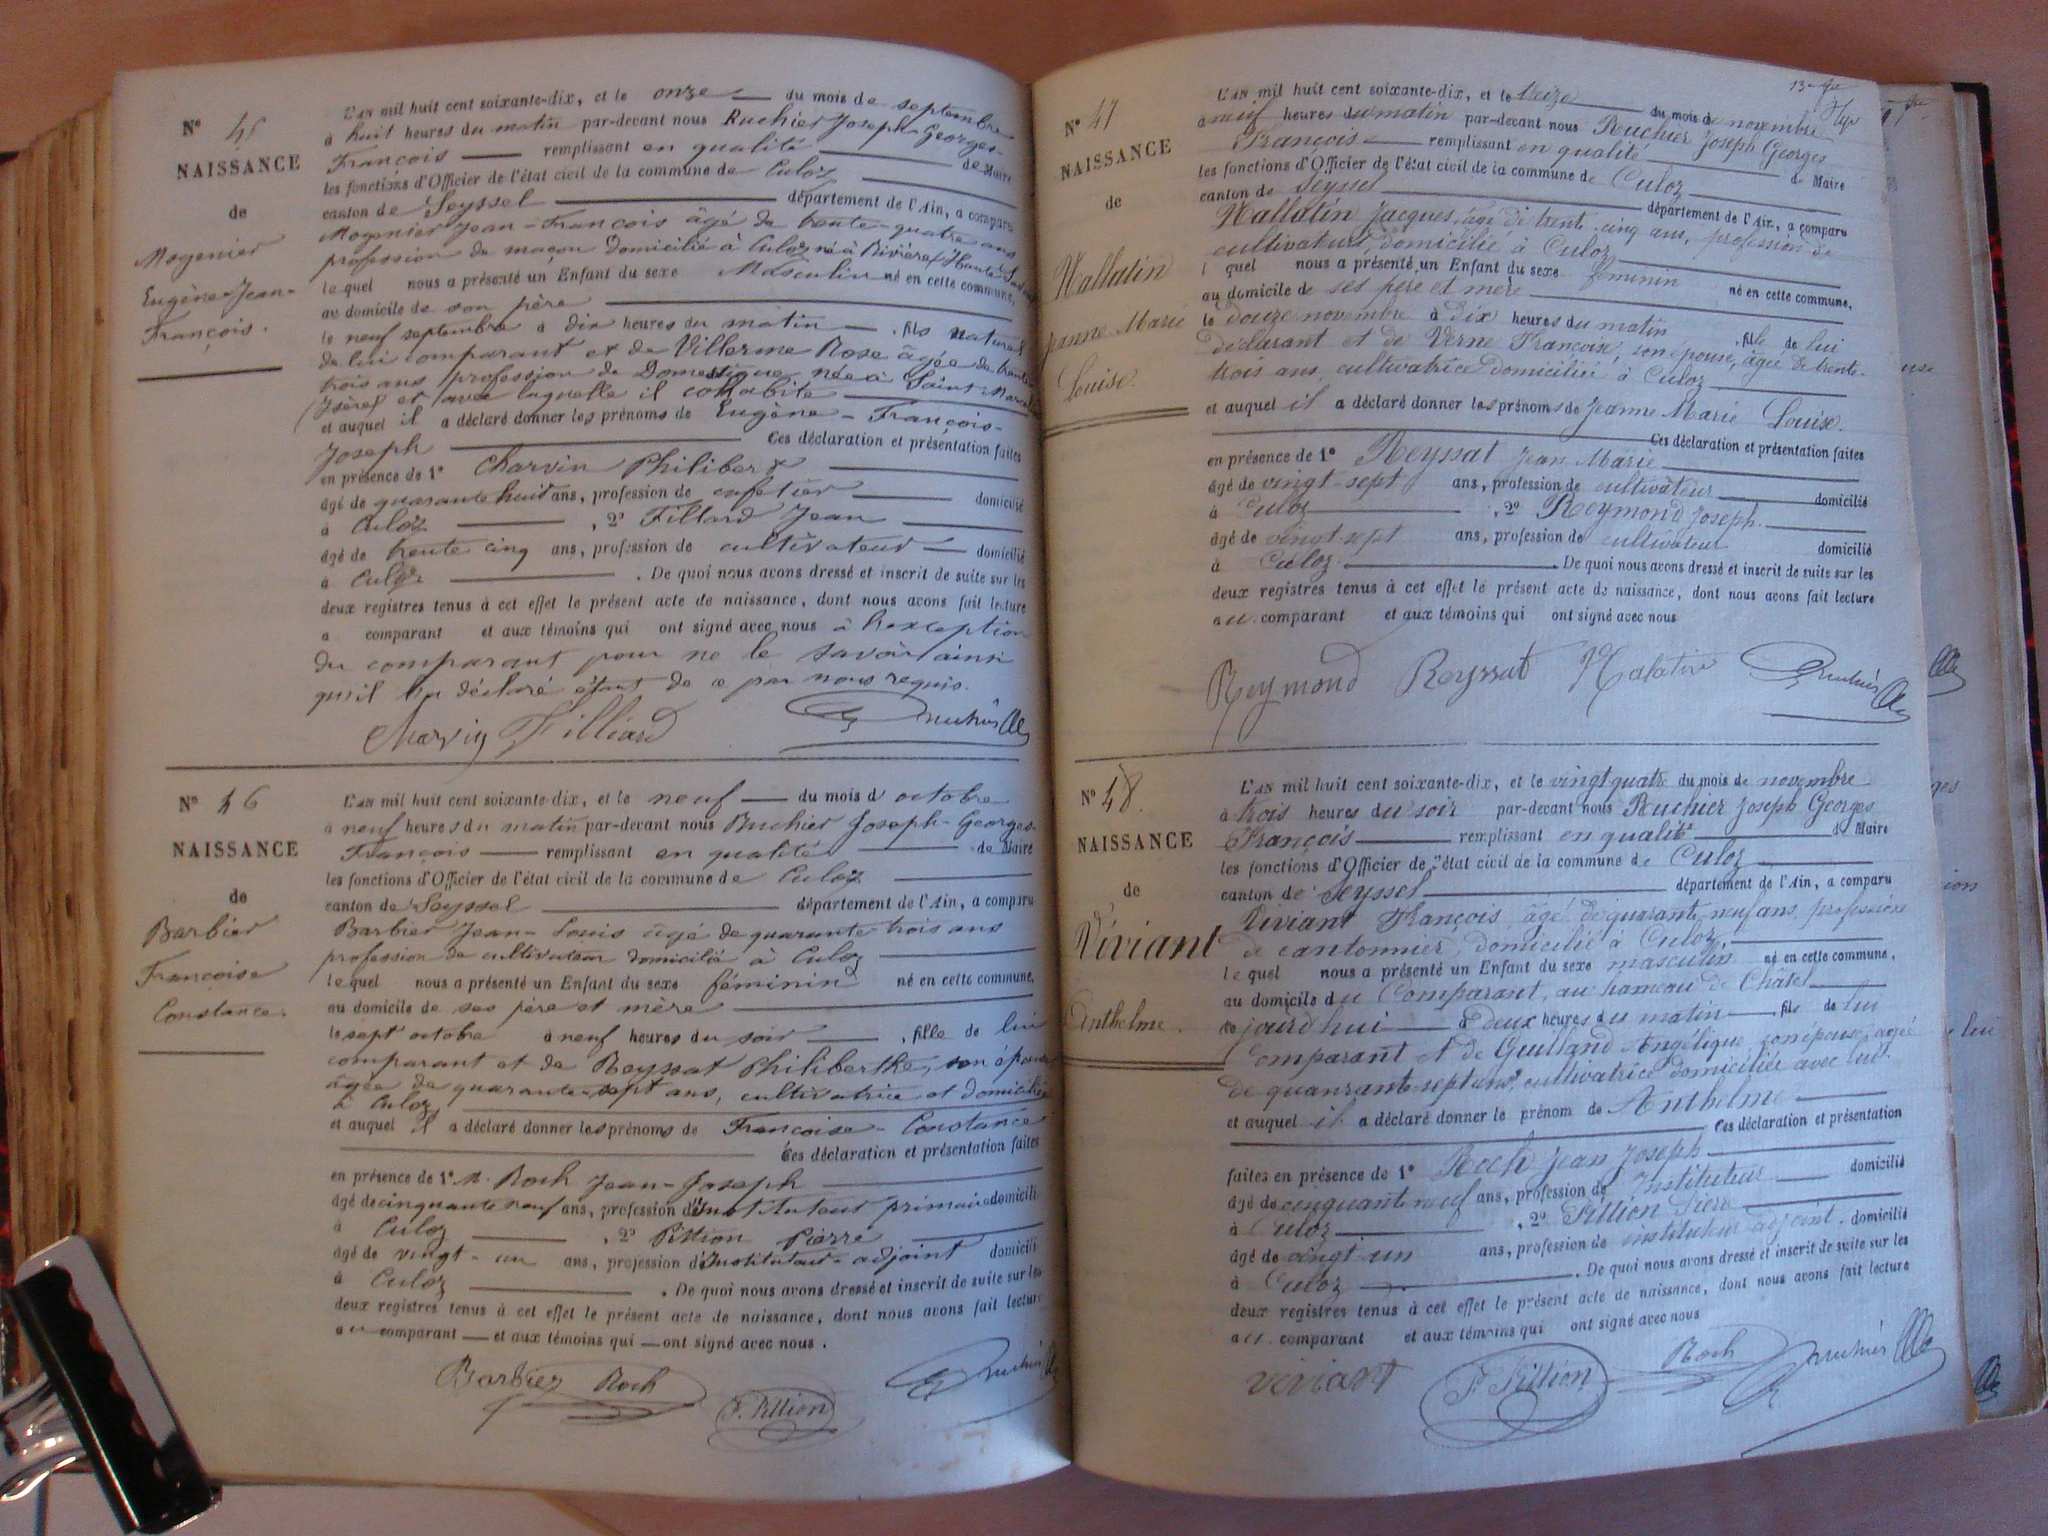 N° 45
NAISSANCE
de
Mogenier
Eugène-Jean-
François.
L'AN mil huit cent soixante-dix, et le onze du mois de septembre
à huit heures du matin par-devant nous Ruchier Joseph-Georges-
François remplissant en qualité de Maire
les fonctions d'Officier de l'état civil de la commune de Culoz
canton de Seyssel département de l'Ain, a comparu
Mogenier Jean-François âgé de trente-quatre ans
profession de maçon domicilié à Culoz né à Rivière (Haute
le quel nous a présenté un Enfant du sexe Masculin né en cette commune,
au domicile de son père
le neuf septembre à dix heures du matin , fils naturel
de lui comparant et de Villerme Rose âgée de trente
trois ans profession de Domestique née à Saint-Marcel
(Isère) et avec laquelle il cohabite
et auquel il a déclaré donner les prénoms de Eugène-François-
Joseph Ces déclaration et présentation faites
en présence de 1° Charvin Philibert
âgé de quarante huit ans, profession de cafetier domicilié
à Culoz , 2° Fillard Jean
âgé de trente cinq ans, profession de cultivateur domicilié
à Culoz . De quoi nous avons dressé et inscrit de suite sur les
deux registres tenus à cet effet le présent acte de naissance, dont nous avons fait lecture
a comparant et aux témoins qui ont signé avec nous à l'exception
du comparant pour ne le savoir ainsi
qu'il l'a déclaré étant de ce par nous requis.
Charvin Filliard Ruchier
N° 46
NAISSANCE
de
Barbier
Françoise
Constance.
L'AN mil huit cent soixante-dix, et le neuf du mois d octobre
à neuf heures du matin par-devant nous Ruchier Joseph-Georges-
François remplissant en qualité de Maire
les fonctions d'Officier de l'état civil de la commune de Culoz
canton de Seyssel département de l'Ain, a comparu
Barbier Jean-Louis âgé de quarante trois ans
profession de cultivateur domicilié à Culoz
le quel nous a présenté un Enfant du sexe féminin né en cette commune,
au domicile de ses père et mère
le sept octobre à neuf heures du soir , fille de lui
comparant et de Reyssat Philiberthe, son épouse
âgée de quarante-sept ans, cultivatrice et domiciliée
à Culoz
et auquel il a déclaré donner les prénoms de Françoise-Constance
Ces déclaration et présentation faites
en présence de 1° M. Roch Jean-Joseph
âgé de cinquante neuf ans, profession d'Instituteur primaire domicilié
à Culoz , 2° Pittion Pierre
âgé de vingt-un ans, profession d'Instituteur-adjoint domicilié
à Culoz . De quoi nous avons dressé et inscrit de suite sur les
deux registres tenus à cet effet le présent acte de naissance, dont nous avons fait lecture
au comparant et aux témoins qui ont signé avec nous.
Barbier Roch P. Pittion Ruchier
13 9bre
N° 47
NAISSANCE
de
Mallatin
Jeanne Marie
Louise.
L'AN mil huit cent soixante-dix, et le treize du mois de novembre
à neuf heures du matin par-devant nous Ruchier Joseph Georges
François remplissant en qualité de Maire
les fonctions d'Officier de l'état civil de la commune de Culoz
canton de Seyssel département de l'Ain, a comparu
Mallatin Jacques, âgé de trente-cinq ans, profession de
cultivateur domicilié à Culoz
l quel nous a présenté un Enfant du sexe féminin né en cette commune,
au domicile de ses père et mère
le douze novembre à dix heures du matin , fille de lui
déclarant et de Verne Françoise, son épouse, âgée de trente-
trois ans, cultivatrice domiciliée à Culoz
et auquel il a déclaré donner les prénoms de Jeanne Marie Louise.
Ces déclaration et présentation faites
en présence de 1° Reyssat Jean Marie
âgé de vingt-sept ans, profession de cultivateur domicilié
à Culoz , 2° Reymond Joseph.
âgé de vingt-sept ans, profession de cultivateur domicilié
à Culoz. . De quoi nous avons dressé et inscrit de suite sur les
deux registres tenus à cet effet le présent acte de naissance, dont nous avons fait lecture
au comparant et aux témoins qui ont signé avec nous
Reymond Reyssat Malatin Ruchier
N° 48.
NAISSANCE
de
Viviant
Anthelme.
L'AN mil huit cent soixante-dix, et le vingt quatre du mois de novembre
à trois heures du soir par-devant nous Ruchier Joseph Georges
François remplissant en qualité d Maire
les fonctions d'Officier de l'état civil de la commune de Culoz
canton de Seyssel département de l'Ain, a comparu
Viviant François, âgé de quarante-neuf ans, profession
de cantonnier, domicilié à Culoz,
le quel nous a présenté un Enfant du sexe masculin né en cette commune,
au domicile du Comparant, au hameau de Châtel
ce jourd'hui à deux heures du matin fils de lui
comparant et de Guilland Angélique, son épouse, agée
de quanrante-sept ans, cultivatrice domiciliée avec lui.
et auquel il a déclaré donner le prénom de Anthelme
Ces déclaration et présentation
faites en présence de 1° Roch Jean Joseph
âgé de cinquant neuf ans, profession de Instituteur domicilié
à Culoz , 2° Pittion Piere
âgé de vingt un ans, profession de instituteur adjoint. domicilié
à Culoz . De quoi nous avons dressé et inscrit de suite sur les
deux registres tenus à cet effet le présent acte de naissance, dont nous avons fait lecture
au comparant et aux témoins qui ont signé avec nous
viviant P. Pittion Roch Ruchier